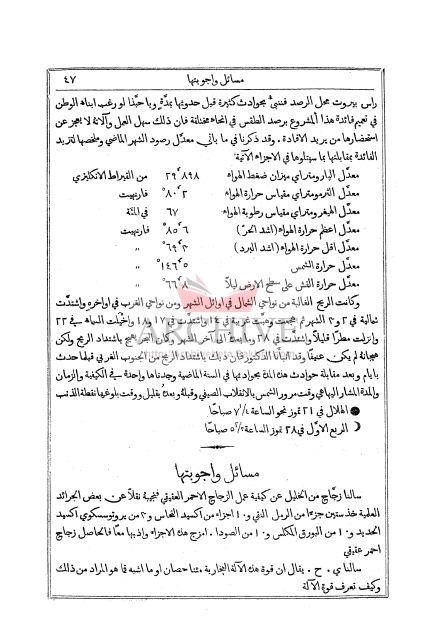 مسائل واجوبتها ٤٧
راس بيروت محل الرصد فتنبئ بحوادث كثيرة قبل حدوثها بمدّة وياحبّذا لو رغب ابناء الوطن
في تعميم فائدة هذا المشروع برصد الطقس في انحاء مختلفة فان ذلك سهل العمل وآلاته لا يعجز عن
استحضارها من يريد الافادة. وقد ذكرنا في ما ياتي معدّل رصود الشهر الماضي وملخصها لتزيد
الفائدة بمقابلتها بما سيتلوها في الاجزاء الآتية
معدّل البارومتر اي ميزان ضغط الهواء ٢٩٬٨٩٨ من القيراط الانكليزي
معدّل الثرمومتر اي مقياس حرارة الهواء فارنهيت
معدّل الهيغرومتر اي مقياس رطوبة الهواء ٦٧ في المئة
معدّل اعظم حرارة الهواء (اشد الحرّ) فارنهيت
معدّل اقل حرارة الهواء (اشد البرد) "
معدّل حرارة الشمس "
معدّل حرارة على سطح الارض ليلاً "
وكانت الريح الغالبة من نواحي الشمال في اوائل الشهر ومن نواحي الغرب في اواخره واشتدّت
شمالية في ٢ و٣ الشهر ثم وهبت غربية في ١٤ واشتدت في ١٧ و١٨ السماء في ٢٢
وانزلت مطرًا قليلاً واشتدت في ٢٨ وما بعد الى آخر الشهر وكان البحر يهيج باشتداد الريح ولكن
هيجانه لم يكن عنيفًا وقد انبأنا الدكتور فان ديك باشتداد الريح من الجنوب الغربي قبلما حدث
بايام وبعد مقابلة حوادث هذه المدة بحوادثها في السنة الماضية وجدناها واحدة في الكيفية والزمان
والمدة المشار اليها هي وقت مرور الشمس بالانقلاب الصيفي وقبلهُ وبعدهُ بقليل ووقت بلوغها نقطة الذنب
الهلال في ٢١ تموز نحو الساعة ٧ ١/٤ صباحًا
الربع الاوّل في ٢٨ تموز الساعة صباحًا
مسائل واجوبتها
سالنا زجّاج من الخليل عن كيفية عمل الزجاج الاحمر العقيقي فنجيبهُ نقلاً عن بعض الجرائد
العلمية خذ ستين جزءا من الرمل النقي و١٠ اجزاء من اكسيد النحاس و٣ من بروتوسسكوي اكسيد
الحديد و١٠ من البورق المكلس و١٠ من الصودا. امزج هذه الاجزاء واذبها معًا فالحاصل زجاج
احمر عقيقي
سالنا ي. ح. يقال ان قوة هذه الآلة البخارية مئتا حصان او ما اشبه فما هو المراد من ذلك
وكيف تعرف قوة الآلة
ARCHIVE